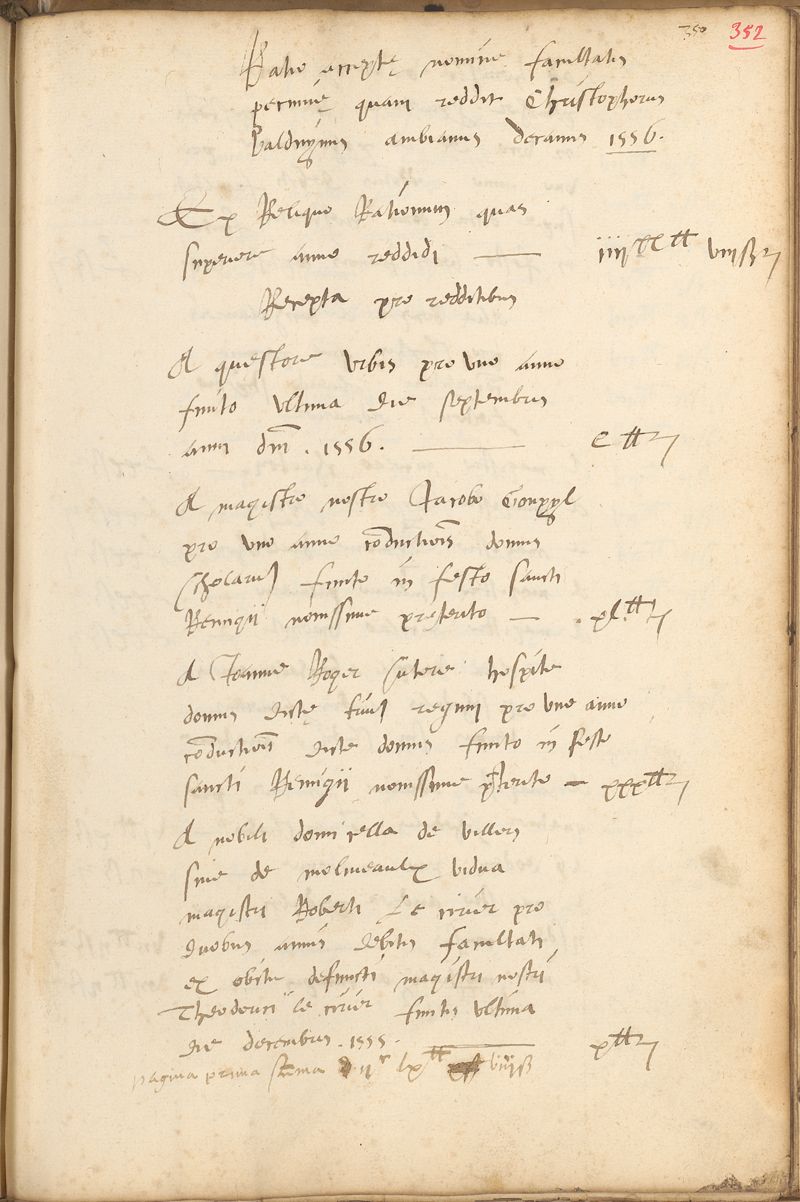 350 352
Ratio acceptę nomine facultatis
pecunię quam reddit Christophorus
Balduynus ambianus decanus 1556.
Ex Reliquo Rationum quas
superiore anno reddidi
Recepta pro redditibus
A questore urbis pro uno anno
finito ultima die septembris
anni dni . 1556 . C ₶
A magistro nostro Jacobo Goupyl
pro uno anno conductionis domus
scholarum finito in festo sancti
Remigii novissime preterito xl ₶
A Joanne Roger sutore hospite
domus dictę trium regum pro uno anno
conductionis dicte domus finito in festo
sancti Remigii novissime preterito xxx ₶
A nobili domicella de villers
sive de molineaulx vidua
magistri Roberti Le cirier pro
duobus annis debitis facultati
ex obitu defuncti magistri nostri
Theoderici le cirier finitis ultima
die decembris . 1555 . x ₶
pagina prima summa